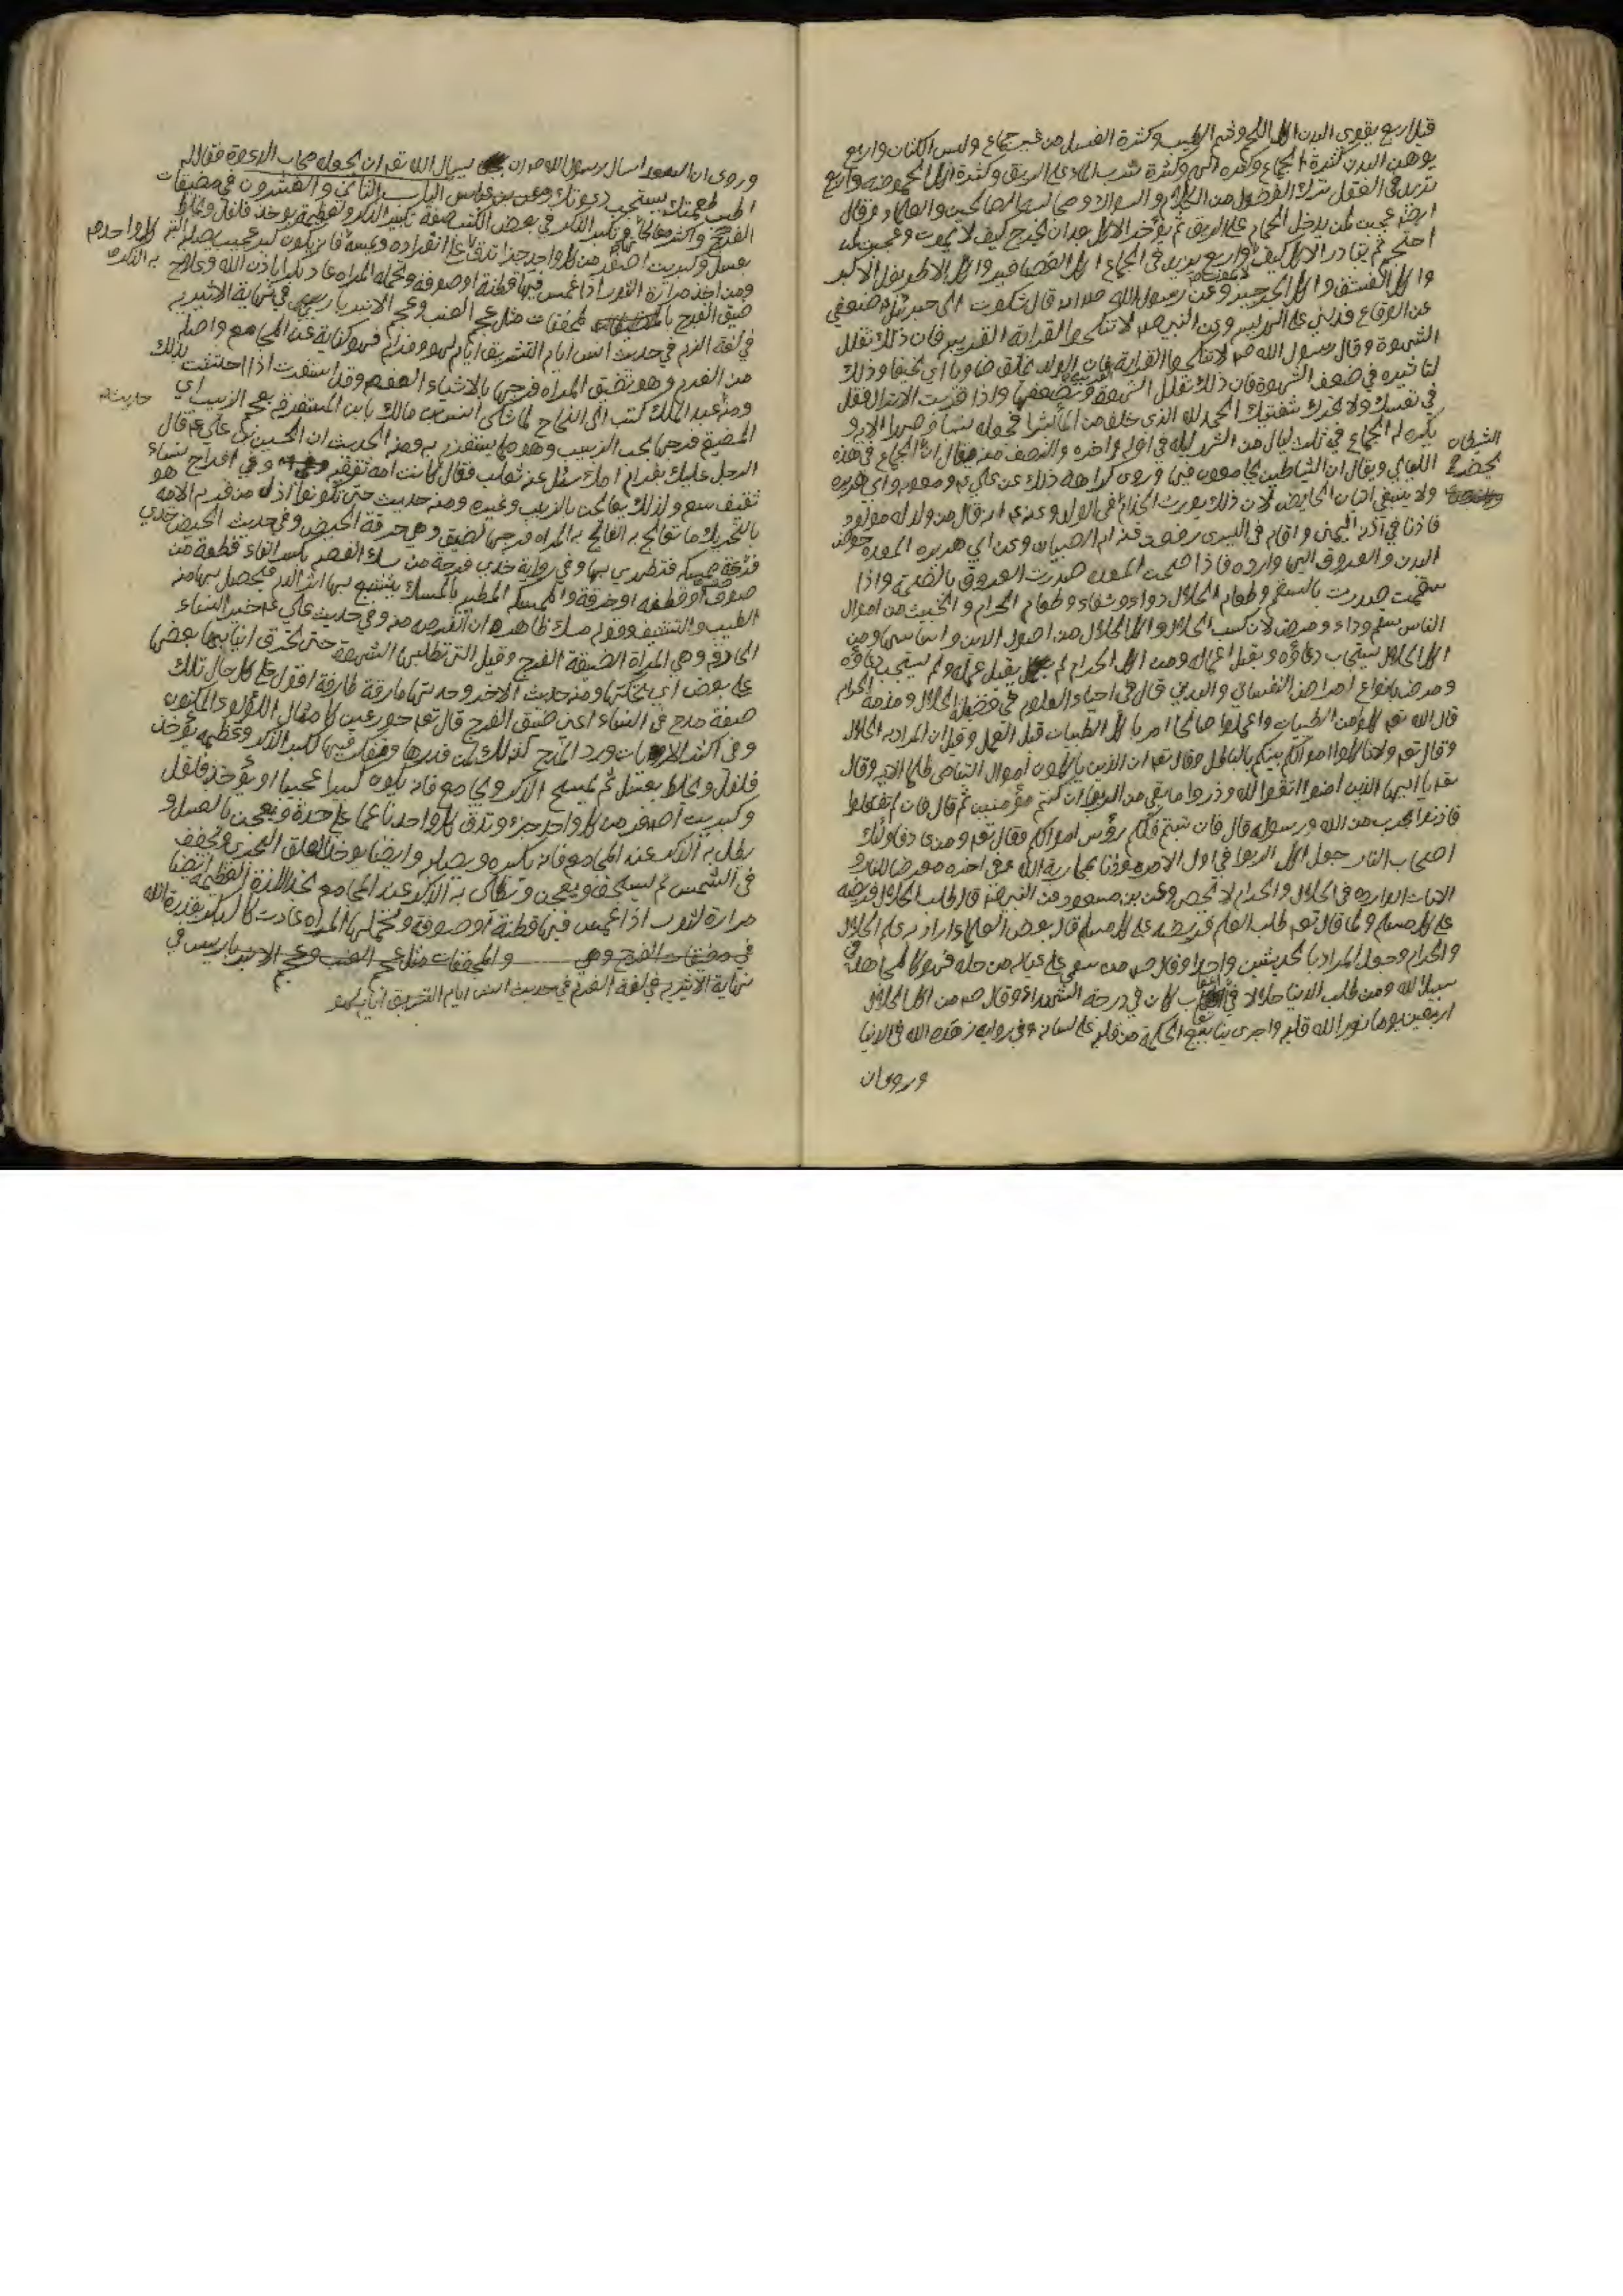 قيل اربع يقوي البدن اكل اللحم وشم الطيب وكثرة الغسل من غير جماع ولبس الكتان واربع
يوهن البدن كثرة الجماع وكثرة الهم وكثرة شرب الماء على الريق وكثرة اكل الحموضه واربع
تزيد في العقل ترك الفضول من الكلام والسواك ومجالسه الصالحين والعلماء وقال
ايضا عجبت لمن يدخل الحمام على الريق ثم يؤخر الاكل بعد ان يخرج كيف لا يموت وعجبت لمن
احتجم ثم يبادر الاكل كيف لا يموت واربع يزيد في الجماع اكل العصافير واكل الاطريفل الاكبر
واكل الفستق واكل الجرجير وعن رسول الله انه قال شكوت الى جبرئيل ضعفي
عن الوقاع فدلني على الهريسه وعن النبي لا تنكحوا القرابة القريبه فان ذلك تقلل
الشهوة وقال رسول الله ص لا تنكحوا القرابة فان الولد يخلق ضاويا اي نحيفا وذلك
لتاثيره في ضعف الشهوة فان ذلك تقلل الشهوة وتضعفها واذا قربت الانزال فقل
في نفسك ولا تحرك شفتيك الحمد لله الذي خلق من الماء بشرا فجعله نسبا وصهرا الايه و
يكره له الجماع في ثلث ليال من الشهر ليله في اوله واخره والنصف منه يقال ان الجماع في هذه
الشيطان يحضر
الليالي ويقال ان الشياطين يجامعون فيها وروى كراهة ذلك عن علي ومعويه وابي هريره
ولا ينبغي اتيان الحايض لان ذلك يورث الجذام في الولد وعنه انه قال من ولد له مولود
فاذن في اذنه اليمنى واقام في اليسرى رفعت عنه ام الصبيان وعن ابي هريره المعده حوض
البدن والعروق اليها وارده فاذا صحت المعده صدرت العروق بالصحة واذا
سقمت صدرت بالسقم وطعام الحلال دواء وشفاء وطعام الحرام والخبث من اموال
الناس سقم وداء ومرض لان كسب الحلال واكل الحلال من اصول الدين واساسها ومن
اكل الحلال يستجاب دعاؤه ويقبل اعماله ومن اكل الحرام لم يقبل عمله ولم يستجب دعاؤه
ومرض بانواع امراض النفساني والبدني قال في احياء العلوم في فضيلة الحلال ومذمة الحرام
قال الله تعالى كلوا من الطيبات واعملوا صالحا امر باكل الطيبات قبل العمل وقيل ان المراد به الحلال
وقال تعالى ولا تاكلوا اموالكم بينكم بالباطل وقال تعالى ان الذين ياكلون اموال اليتامى ظلما الايه وقال
تعالى يا ايها الذين امنوا اتقوا الله وذروا ما بقي من الربوا ان كنتم مؤمنين ثم قال فان لم تفعلوا
فاذنوا بحرب من الله ورسوله ثم قال فان تبتم فلكم رؤس اموالكم وقال تعالى ومن عاد فاولئك
اصحاب النار جعل اكل الربوا في اول الامر مؤذنا بمحاربة الله وفي اخره معرضا للنار و
الايات الوارده في الحلال والحرام لا تحصى وعن بن مسعود عن النبي قال طلب الحلال فريضه
على كل مسلم ولما قال طلب العلم فريضه على كل مسلم قال بعض العلماء اراد به علم الحلال
والحرام وجعل المراد بالحديثين واحدا وقال ص من سعى على عياله من حله فهو كالمجاهد في
سبيل الله ومن طلب الدنيا حلالا في عفاف كان في درجة الشهداء وقال ص من اكل الحلال
اربعين يوما نور الله قلبه واجرى ينابيع الحكمة من قلبه على لسانه وفي روايه زهده الله في الدنيا
وروي ان
وروى ان السعد سال رسول الله ص ان يسال الله تعالى ان يجعله مجاب الدعوة فقال له
اطب طعمتك يستجب دعوتك وعن بن عباس الباب الثاني والعشرون في مضيقات
الفرج وتكبير الذكر في بعض الكتب صفة تكبير الذكر وتعظيمه يوخذ فلفل ويخلط
بعسل وكبريت اصفر من كل واحد جزء تدق على انفراده
ومن اخذ مرارة الثور اذا غمس فيها قطنة او صوفة وتحمله المراه عاد بكرا باذن الله
ضيق الفرج مثل عجم العنب وعجم الانبرباريس في نهاية الاثيريه
في لغة الفرم في حديث انس ايام التشريق ايام لهو وفرام فهو كناية عن المجامع واصله
من الفرم وهو تضيق المراه فرجها بالاشياء العفصه وقد استفرمت اذا احتشت بذلك
ومنه عبد الملك كتب الى الحجاج لما شكى انس بن مالك يا بن المستفرمة بعجم الزبيب اي
المضيق فرجها بحب الزبيب وهو مما يستفرم به ومنه الحديث ان الحسين بن علي قال
الرجل عليك بفرام امك سئل عنه ثعلب فقال كانت امه ثقفيه وفي احراج نساء
ثقيف سعه ولذلك يعالجن بالزبيب وغيره ومنه حديث حتى تكونوا اذل من فرم الامه
بالتحريك ما تعالج به المراه فرجها لتضيق وهي خرقة الحيض وفي حديث الحيض خذي
فرصة ممسكه فتطهري بها وفي رواية خذي فرصة من مسك الفرصه بكسر الفاء قطعة من
صوف او قطنه او خرقة والممسكه المطيبه بالمسك يتتبع بها اثر الدم فيحصل بها منه
الطيب والتنشيف وقوله مسك ظاهره ان الفرصه منه وفي حديث علي خير النساء
الحارقة وهي المراة الضيقة الفرج وقيل التي تغلبها الشهوة حتى تحرق انيابها بعضها
على بعض اي تحكها ومنه حديث الاخر وجدتها حارقة طارقة اقول على كل حال تلك
صفة مدح في النساء اعني ضيق الفرج قال تعالى حور عين كامثال اللؤلؤ المكنون
فلفل ويخلط بعسل ثم يمسح الذكر ويجامع فانه يكون كبيرا عجيبا او يؤخذ فلفل
وكبريت اصفر من كل واحد جزء وتدق كل واحد ناعما على حدة ويعجن بالعسل و
يطلى به الذكر عند المجامع فانه يكبره ويصلب وايضا يوخذ العلق البحري ويجفف
في الشمس ثم يسحق ويعجن ويطلى به الذكر عند المجامع يجد اللذة العظيمة ايضا
مرارة الثور اذا غمس فيها قطنة او صوفة وتحملها المراه عادت كالبكر بقدرة الله
في مضيقات الفرج وهي والمجففات مثل عجم العنب وعجم الانبرباريس في
نهاية الاثيريه في لغة الفرم في حديث انس ايام التشريق ايام لهو